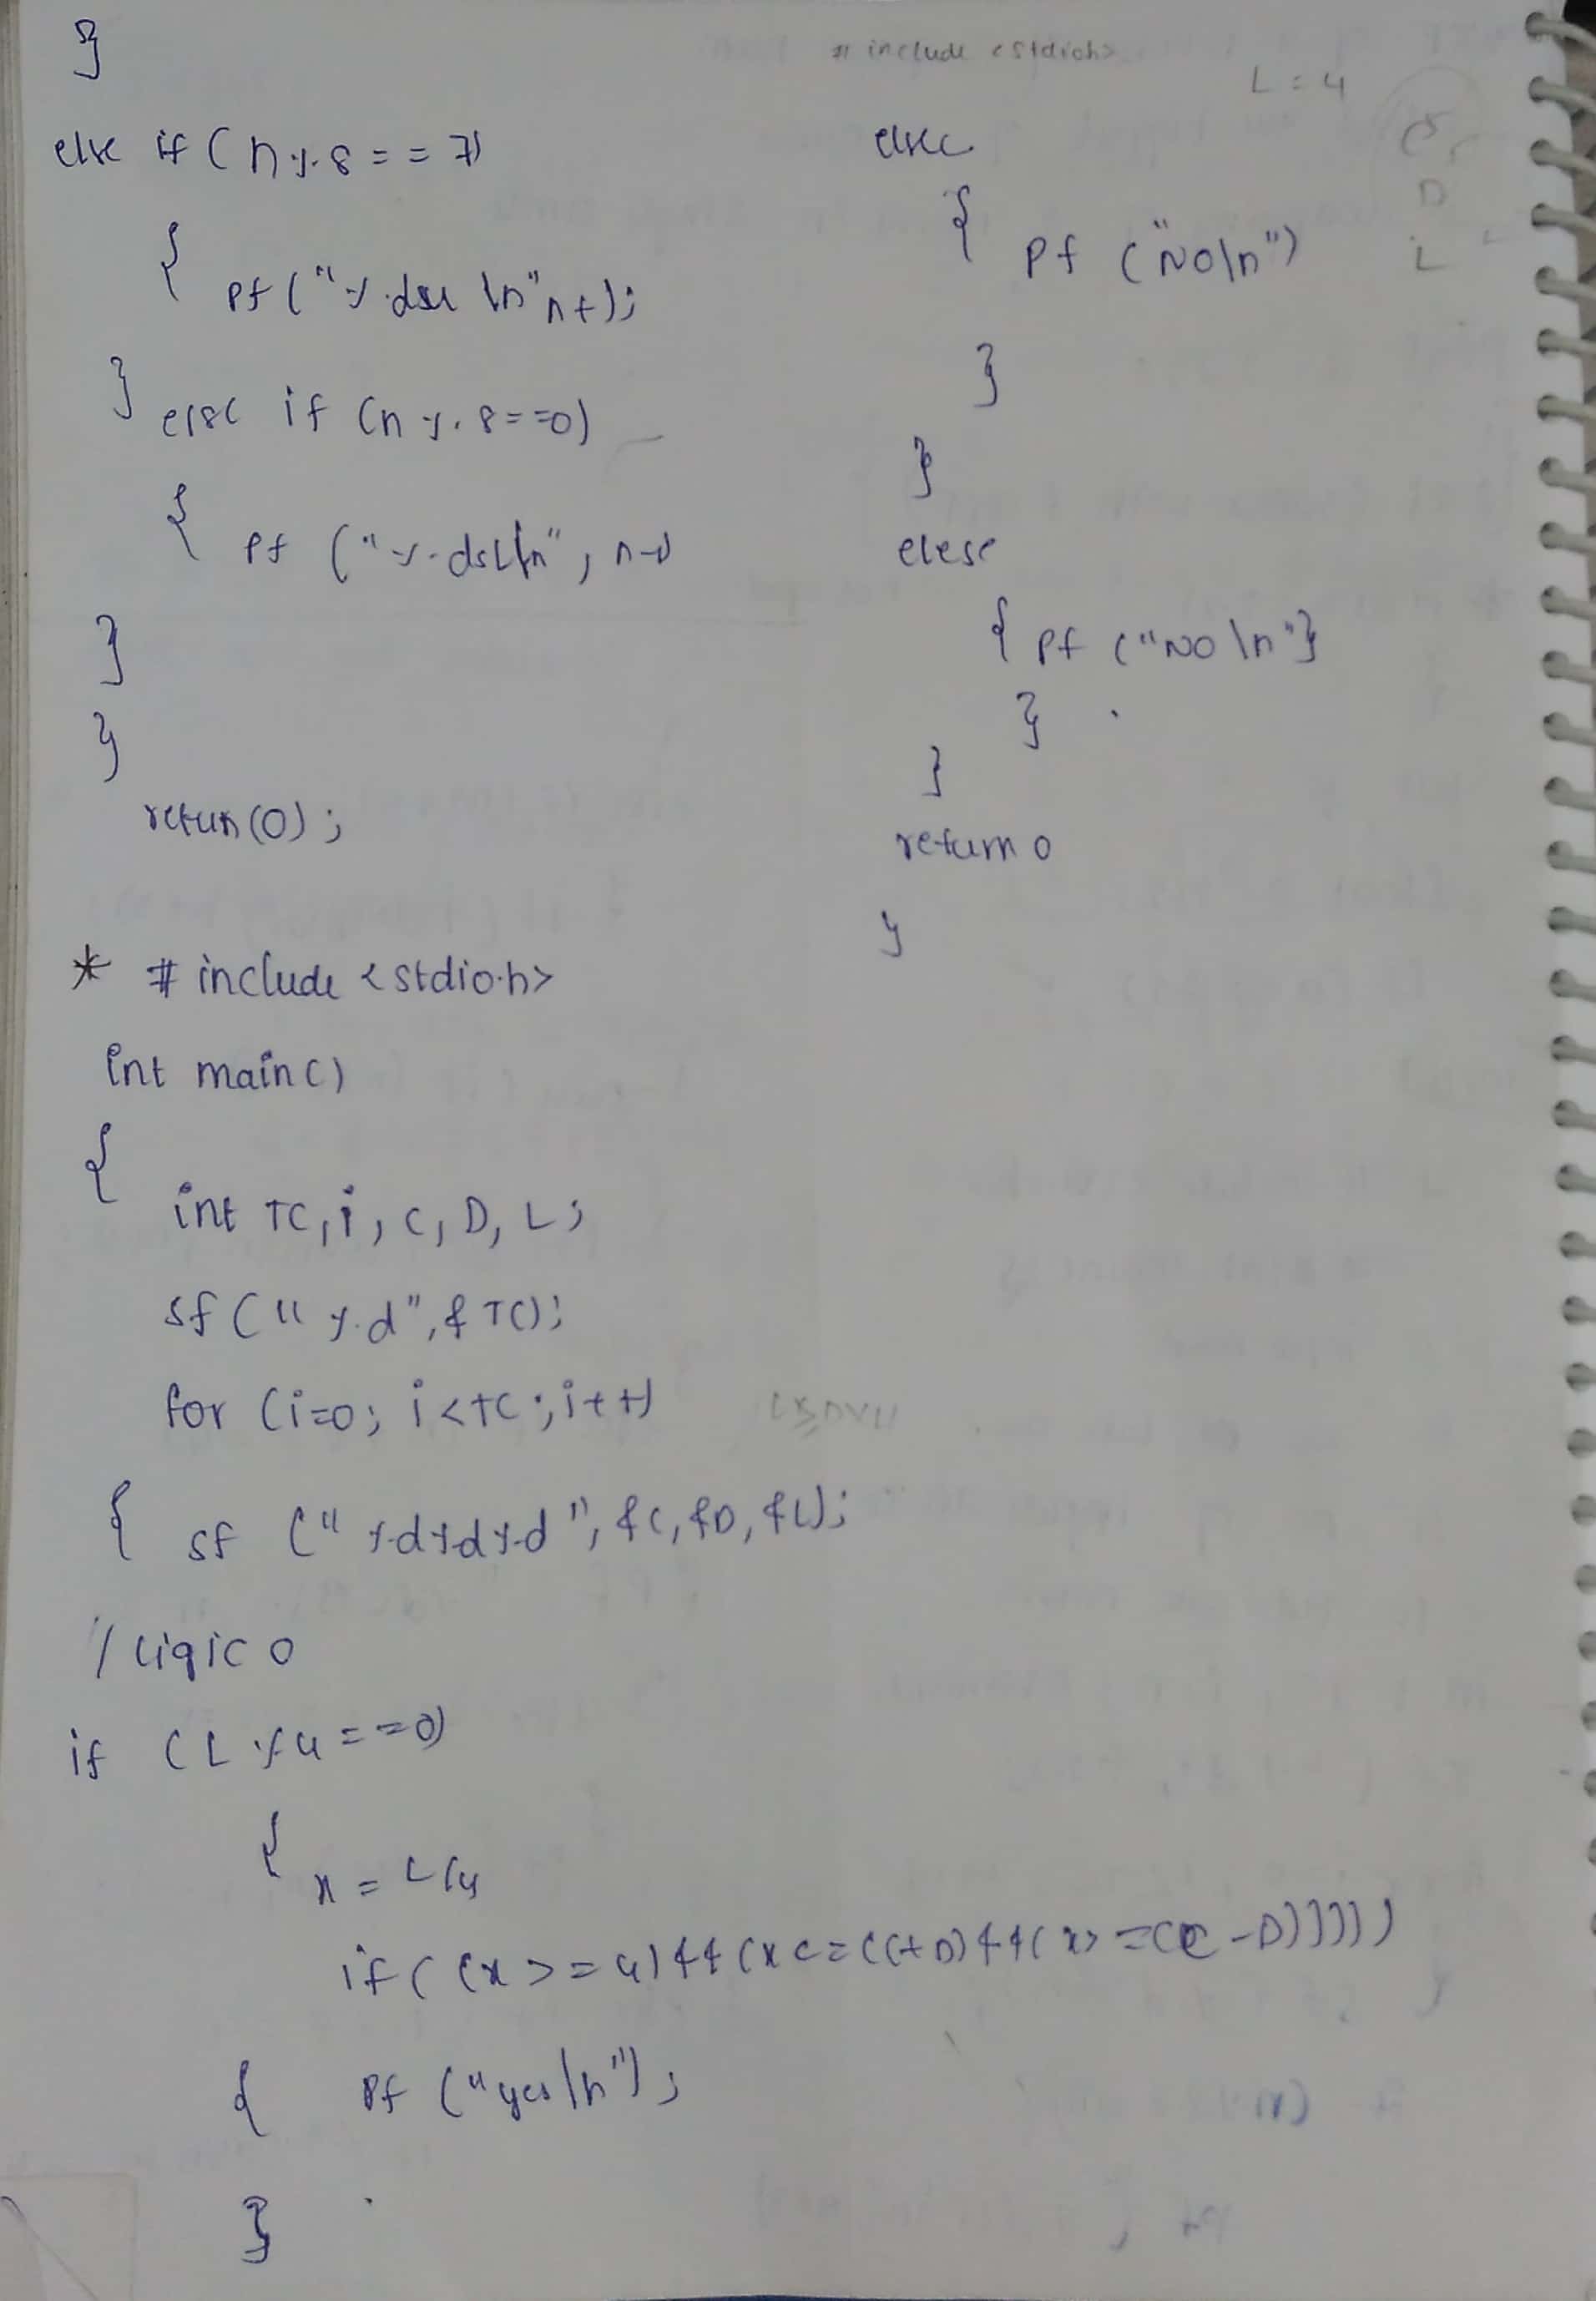 }
else if (n%8==7)
{
pf("%dsu \n"n+);
}
else if (n%8==0)
{
pf ("%dsl\n", n-1)
}
}
retun(0);
* #include <stdio.h>
int main()
{
int TC, i, C, D, L;
sf ("%d", &TC);
for (i=0; i<TC; i++)
{ sf ("%d%d%d", &C, &D, &L);
/ Liqic 0
if (L%4==0)
{
x = L/4
if ((x>=4)&&(x<=((+D)&&(x>=(C-D)))))
{ Pf ("yes\n");
}
# include <stdioh>
L = 4
D
L
else
{
Pf ("NO\n")
}
}
elese
{ Pf ("NO \n"}
}
}
return 0
}